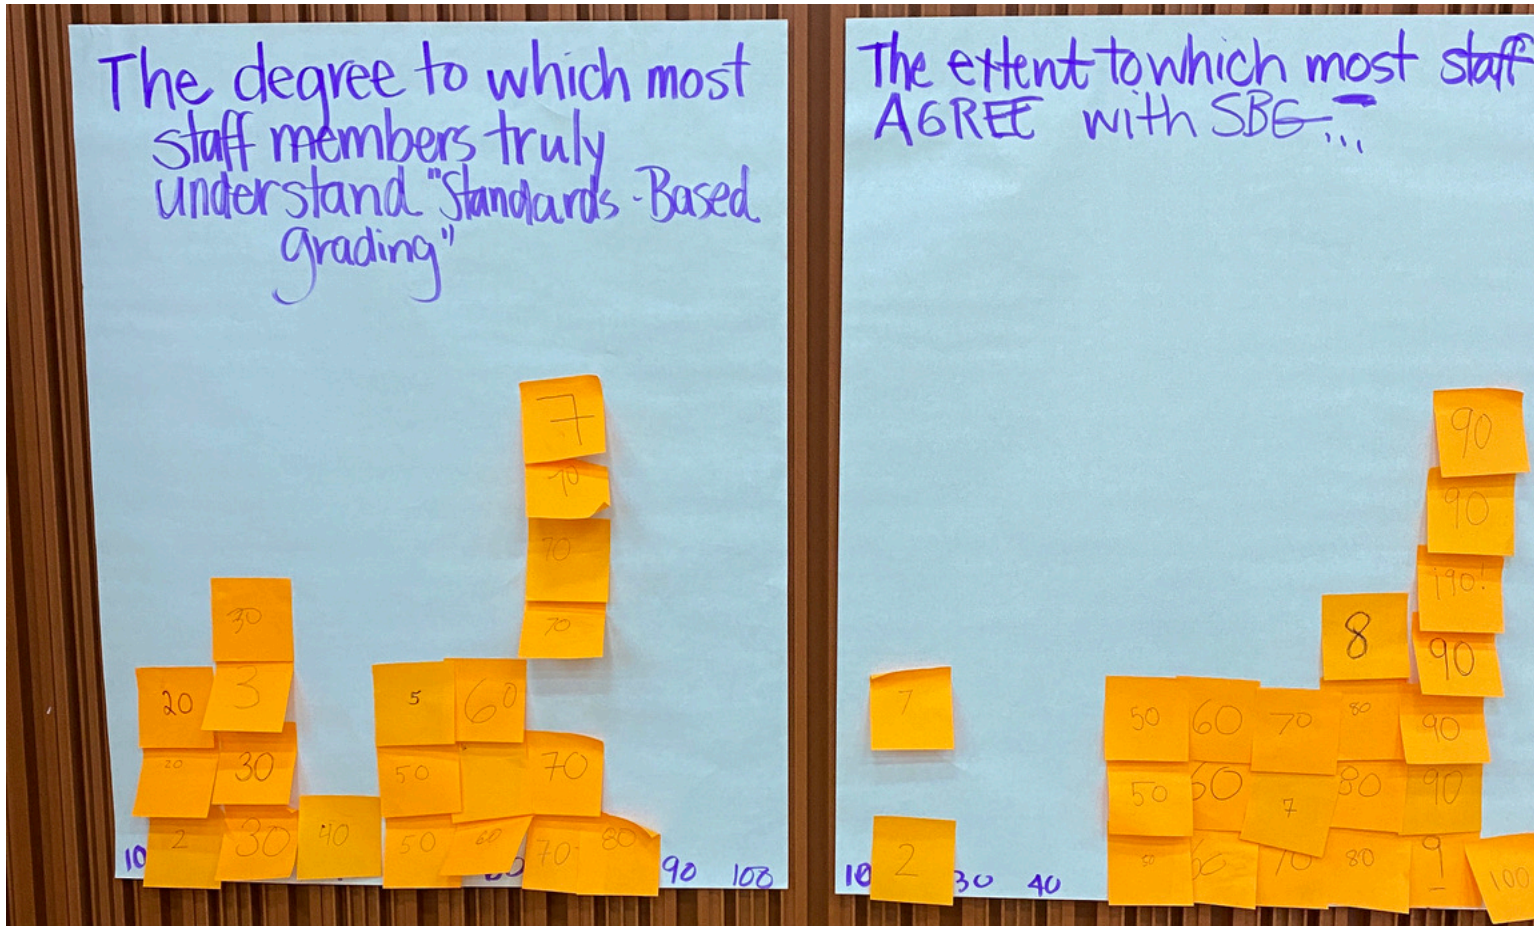 The degree to which most
staff members truly
understand "Standards-Based
grading"
7
70
70
70
30
20
3
5
60
20
30
50
70
2
30
40
50
60
70
80
10
90
100
The extent to which most staff
AGREE with SBG...
90
90
¡90!
8
90
7
50
60
70
80
90
50
60
7
80
90
2
50
60
70
80
9
100
10
30
40